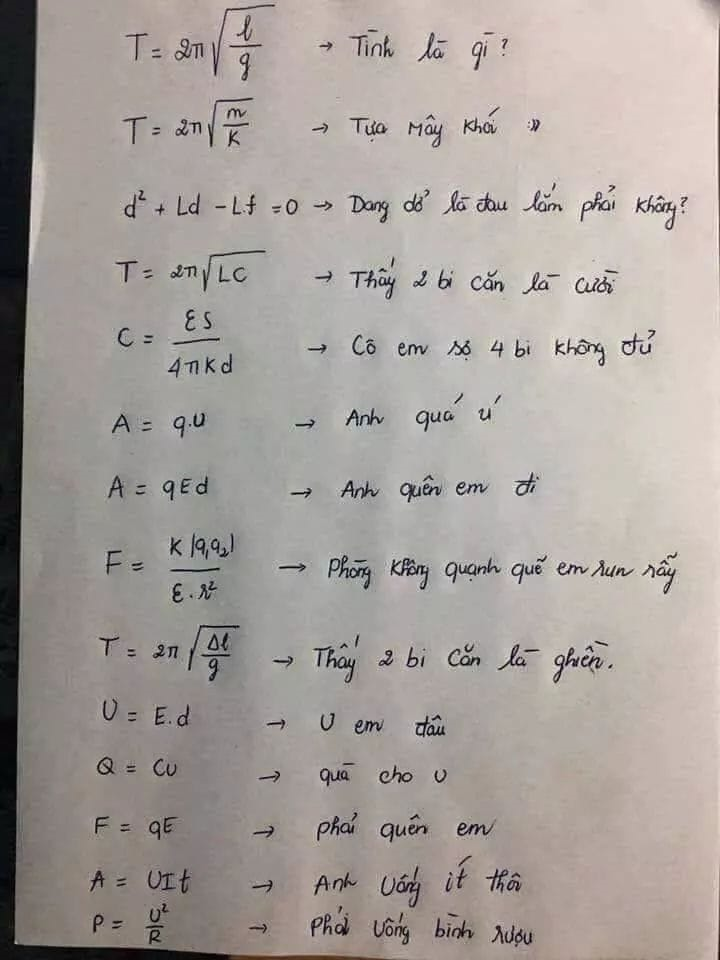 T = 2π√(l/g) → Tình là gì?
T = 2π√(m/K) → Tựa mây khói :))
d² + Ld - L.f = 0 → Dang dở là đau lắm phải không?
T = 2π√LC → Thấy 2 bi căn là cười
C = εS/4πKd → Cô em sợ 4 bi không đủ
A = q.U → Anh quá ú
A = qEd → Anh quên em đi
F = K|q₁q₂|/ε.r² → Phòng không quạnh quẽ em run rẫy
T = 2π√(Δl/g) → Thấy 2 bi căn là ghiền.
U = E.d → U em đâu
Q = CU → quà cho U
F = qE → phải quên em
A = UIt → Anh uống ít thôi
P = U²/R → Phải uống bình rượu